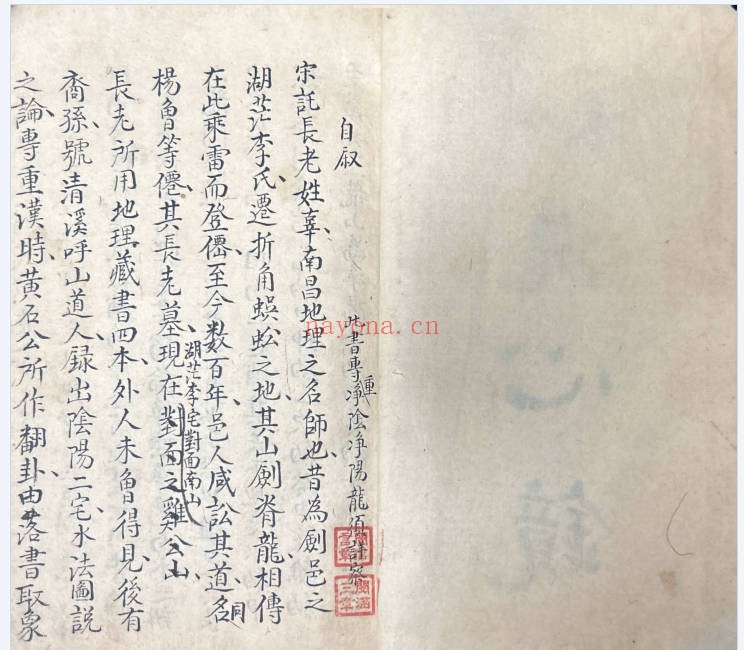 自叙
此書專重凈陰凈陽龍須詳察
宋託長老姓辜南昌地理之名師也昔為劍邑之
湖茫李氏遷折角蜈蚣之地其山劍脊龍相傳
在此乘雷而登僊至今数百年邑人咸訟其道名同
楊魯等僊其長老墓現在對面之雞公山
湖茫李宅對面南山
長老所用地理藏書四本外人未魯得見後有
裔孫號清溪呼山道人録出陰陽二宅水法圖説
之論專重漢時黄石公所作翻卦由落書取象
nayona.cn